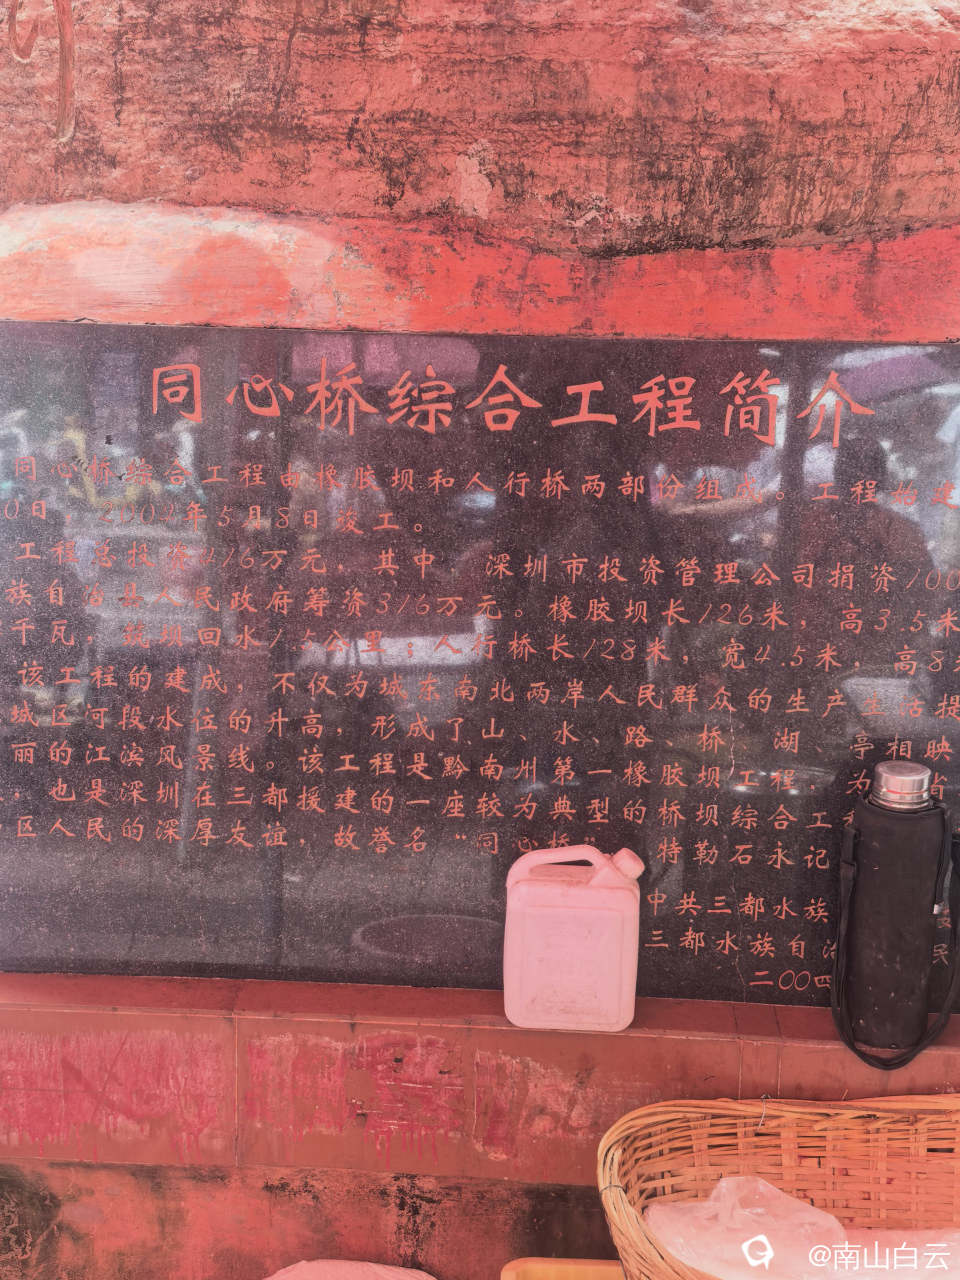 同心桥综合工程简介
同心桥综合工程由橡胶坝和人行桥两部份组成。工程始建
0日,2004年5月8日竣工。
工程总投资416万元,其中 深圳市投资管理公司捐资100
族自治县人民政府筹资316万元。橡胶坝长126米,高3.5米
千瓦,筑坝回水1.5公里;人行桥长128米,宽4.5米,高8米
该工程的建成,不仅为城东南北两岸人民群众的生产生活提
城区河段水位的升高,形成了山、水、路、桥、湖、亭相映
丽的江滨风景线。该工程是黔南州第一橡胶坝工程,为省
,也是深圳在三都援建的一座较为典型的桥坝综合工
区人民的深厚友谊,故誉名“同心桥” 特勒石永记
中共三都水族
三都水族自治 民
二00四
@南山白云